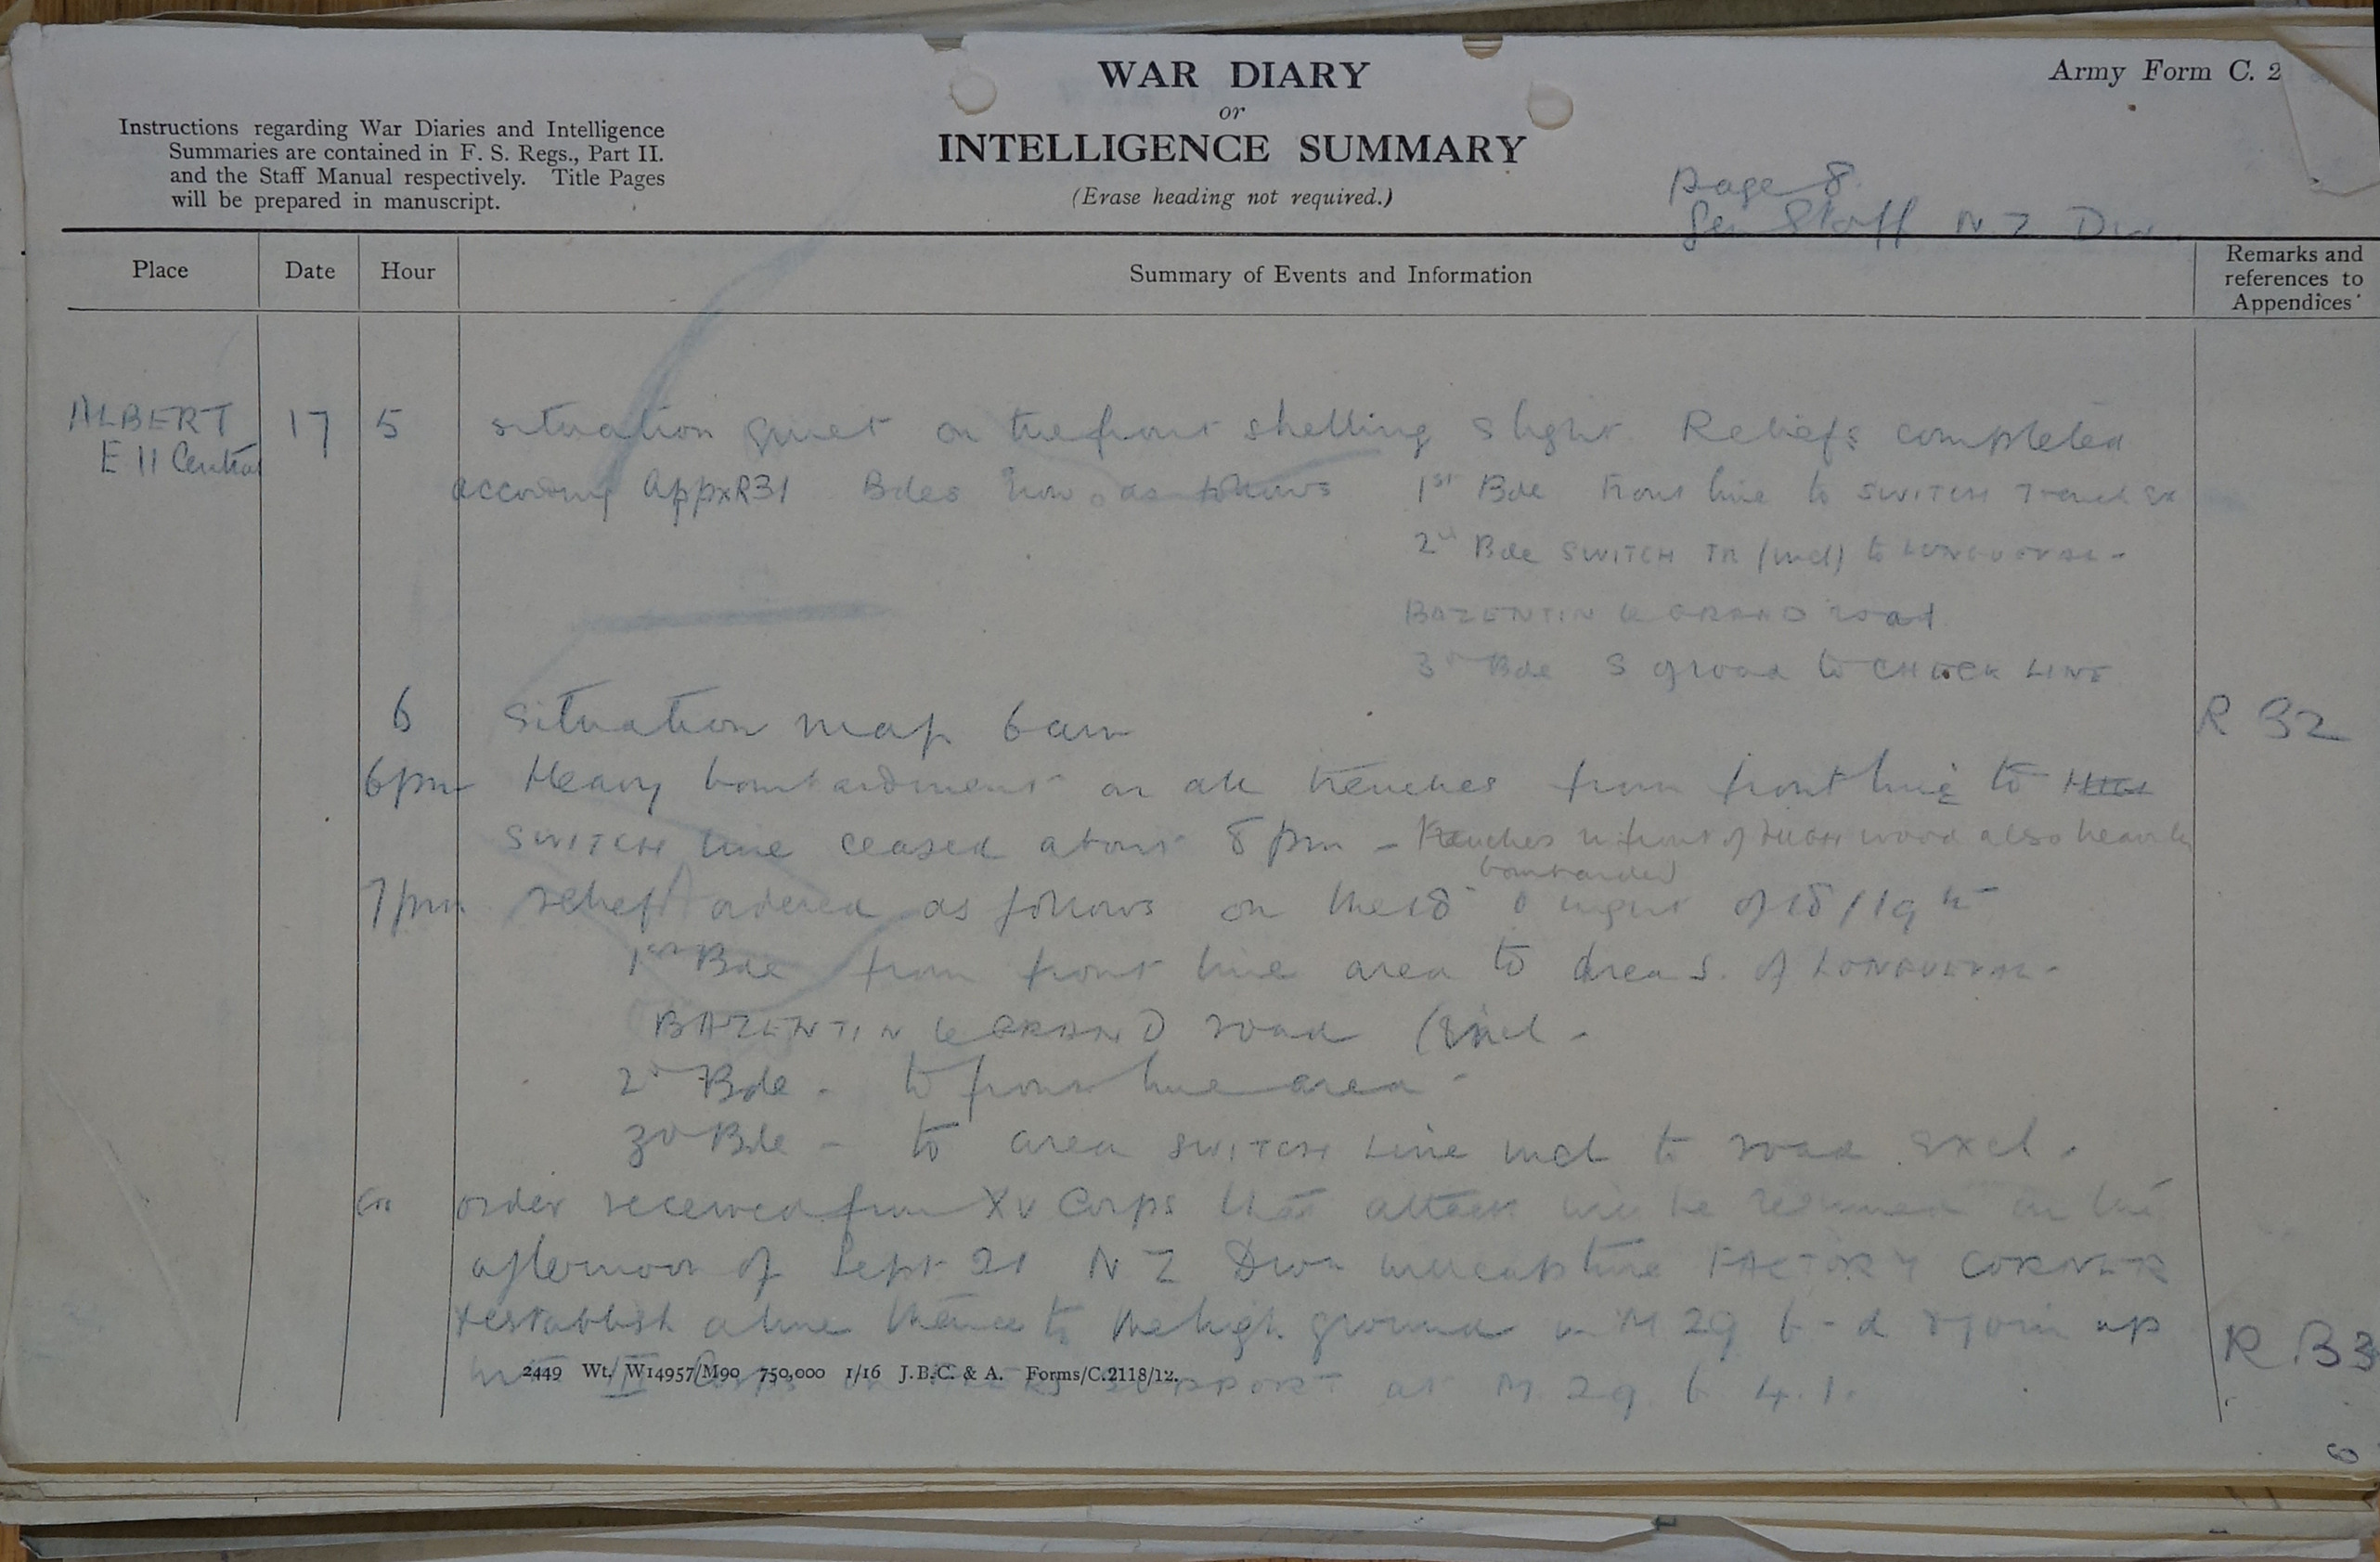 WAR DIARY
or
INTELLIGENCE SUMMARY
(Erase heading not required.)
Army Form C. 2
Instructions regarding War Diaries and Intelligence
Summaries are contained in F. S. Regs., Part II.
and the Staff Manual respectively. Title Pages
will be prepared in manuscript.
page 8
Gen Staff N Z Div.
Place Date Hour Summary of Events and Information Remarks and
references to
Appendices
ALBERT 17 5 situation quiet on the front shelling slight Reliefs completed
E 11 Central
according Appx R31 Bdes now as follows 1st Bde Front line to SWITCH Trench Ex
2nd Bde SWITCH TR (incl) to LONGUEVAL -
BAZENTIN le GRAND road
3rd Bde S of road to CHECK LINE
6 Situation map 6am R 32
6pm Heavy bombardment on all trenches from front line to HIGH
SWITCH line ceased about 8 pm - Trenches in front of HIGH wood also heavily
bombarded
7pm relief ordered as follows on the 18 night of 18/19th
1st Bde from front line area to area S. of LONGUEVAL -
BAZENTIN le GRAND road (incl -
2d Bde - to front line area -
3d Bde - to area SWITCH Line incl to road excl.
order received from XV Corps that attack will be resumed on the
afternoon of Sept 21 N Z Divn will capture FACTORY CORNER
& establish a line thence to the high ground in M 29 b - d & join up R 33
with III Corps SUPPORT at M 29 b 4.1.
2449 Wt. W14957/M90 750,000 1/16 J.B.C. & A. Forms/C.2118/12.